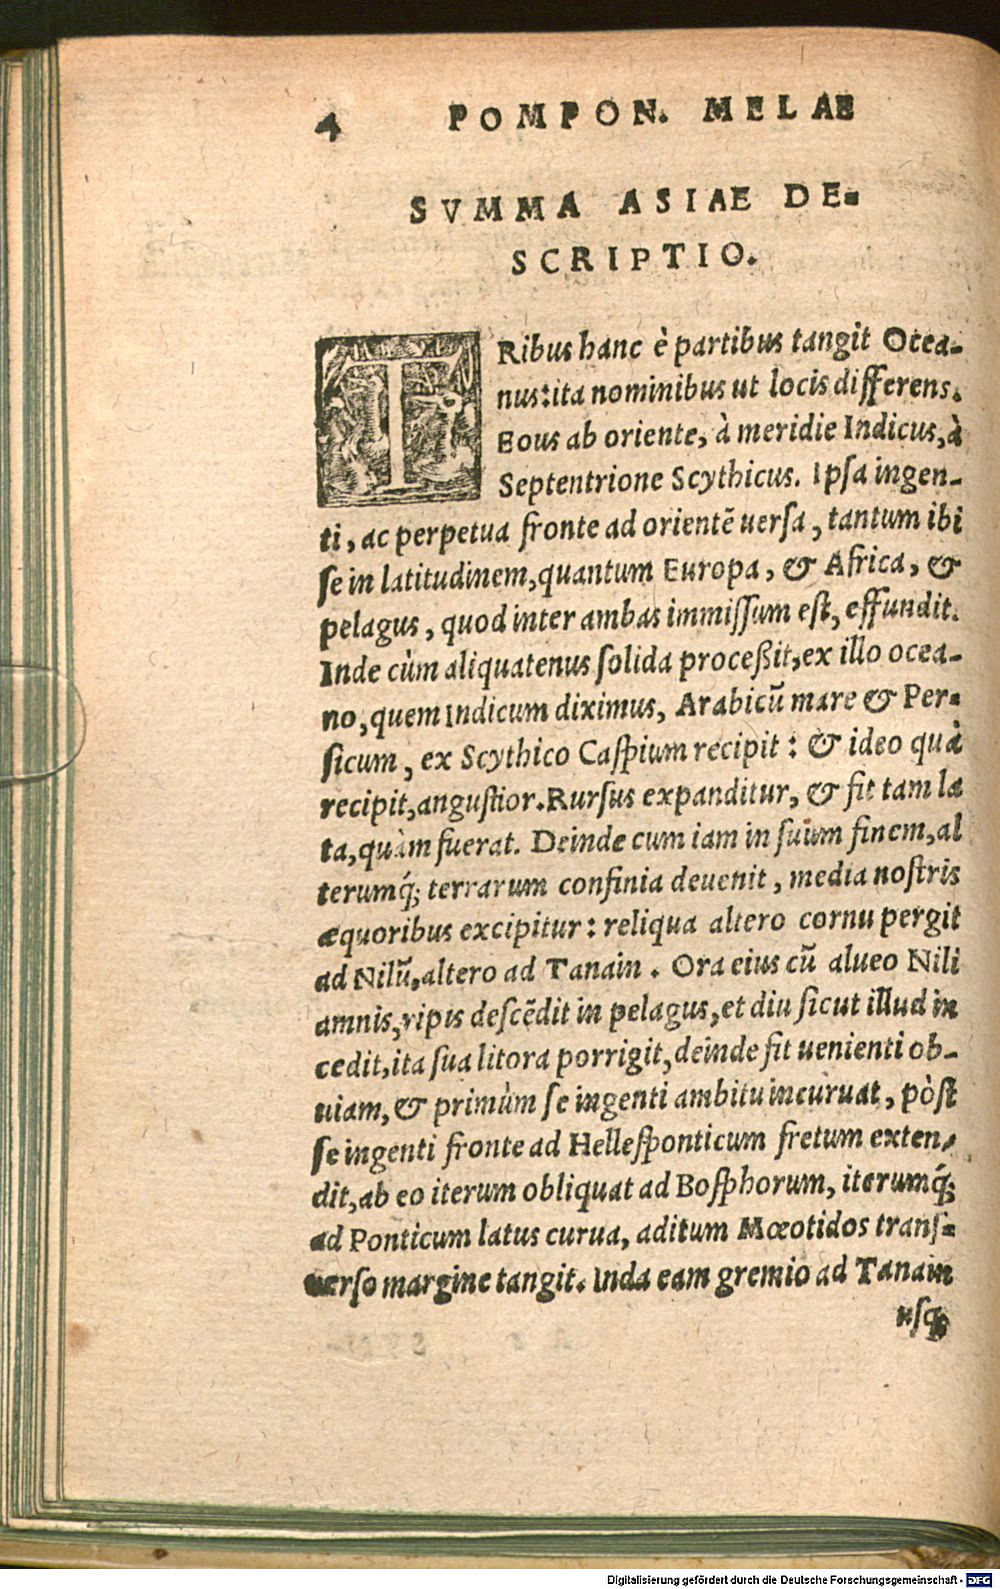 4 POMPON. MELAE
SVMMA ASIAE DE-
SCRIPTIO.
TRibus hanc è partibus tangit Ocea-
nus: ita nominibus ut locis differens.
Eous ab oriente, à meridie Indicus, à
Septentrione Scythicus. Ipsa ingen-
ti, ac perpetua fronte ad orientē uersa, tantum ibi
se in latitudinem, quantum Europa, & Africa, &
pelagus, quod inter ambas immissum est, effundit.
Inde cùm aliquatenus solida proceßit, ex illo ocea-
no, quem Indicum diximus, Arabicū mare & Per-
sicum, ex Scythico Caspium recipit: & ideo quà
recipit, angustior. Rursus expanditur, & fit tam la
ta, quàm fuerat. Deinde cum iam in suum finem, al
terumq́; terrarum confinia deuenit, media nostris
æquoribus excipitur: reliqua altero cornu pergit
ad Nilū, altero ad Tanain. Ora eius cū alueo Nili
amnis, ripis descēdit in pelagus, et diu sicut illud in
cedit, ita sua litora porrigit, deinde fit uenienti ob-
uiam, & primùm se ingenti ambitu incuruat, pòst
se ingenti fronte ad Hellesponticum fretum exten-
dit, ab eo iterum obliquat ad Bosphorum, iterumq́;
ad Ponticum latus curua, aditum Mœotidos trans-
uerso margine tangit. Inda eam gremio ad Tanain
usq;
Digitalisierung gefördert durch die Deutsche Forschungsgemeinschaft - DFG